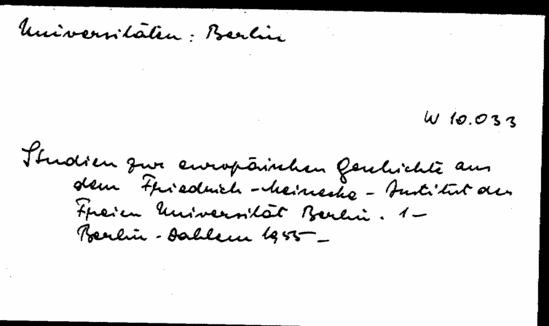 Universitäten: Berlin
W 10.033
Studien zur europäischen Geschichte aus
dem Friedrich-Meinecke-Institut der
Freien Universität Berlin. 1-
Berlin-Dahlem 1955-